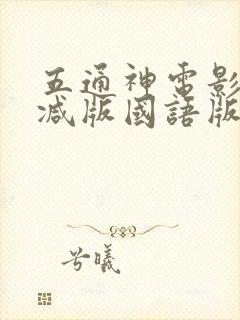 五通神電影
減版國語版
兮曦